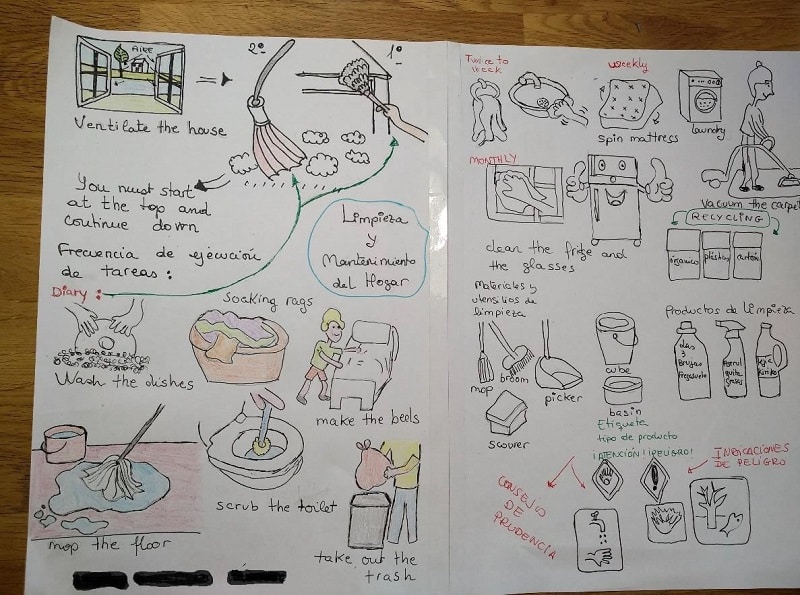 AIRE
2º
1º
Ventilate the house
You must start
at the top and
continue down
Frecuencia de ejecución
de tareas:
Limpieza
y
Mantenimiento
del Hogar
Diary:
Soaking rags
Wash the dishes
make the beds
scrub the toilet
mop the floor
take out the
trash
Twice to
week
weekly
spin mattress
laundry
MONTHLY
Vacuum the carpet
clean the fridge and
the glasses
RECYCLING
orgánico
plástico
cartón
Materiales y
utensilios de
limpieza
Productos de limpieza
mop
broom
picker
cube
basin
scourer
Las
3
Brujas
Fregasuelo
quita
grasas
Etiqueta
tipo de producto
¡ATENCIÓN! ¡PELIGRO!
INDICACIONES
DE PELIGRO
CONSEJO
DE
PRUDENCIA